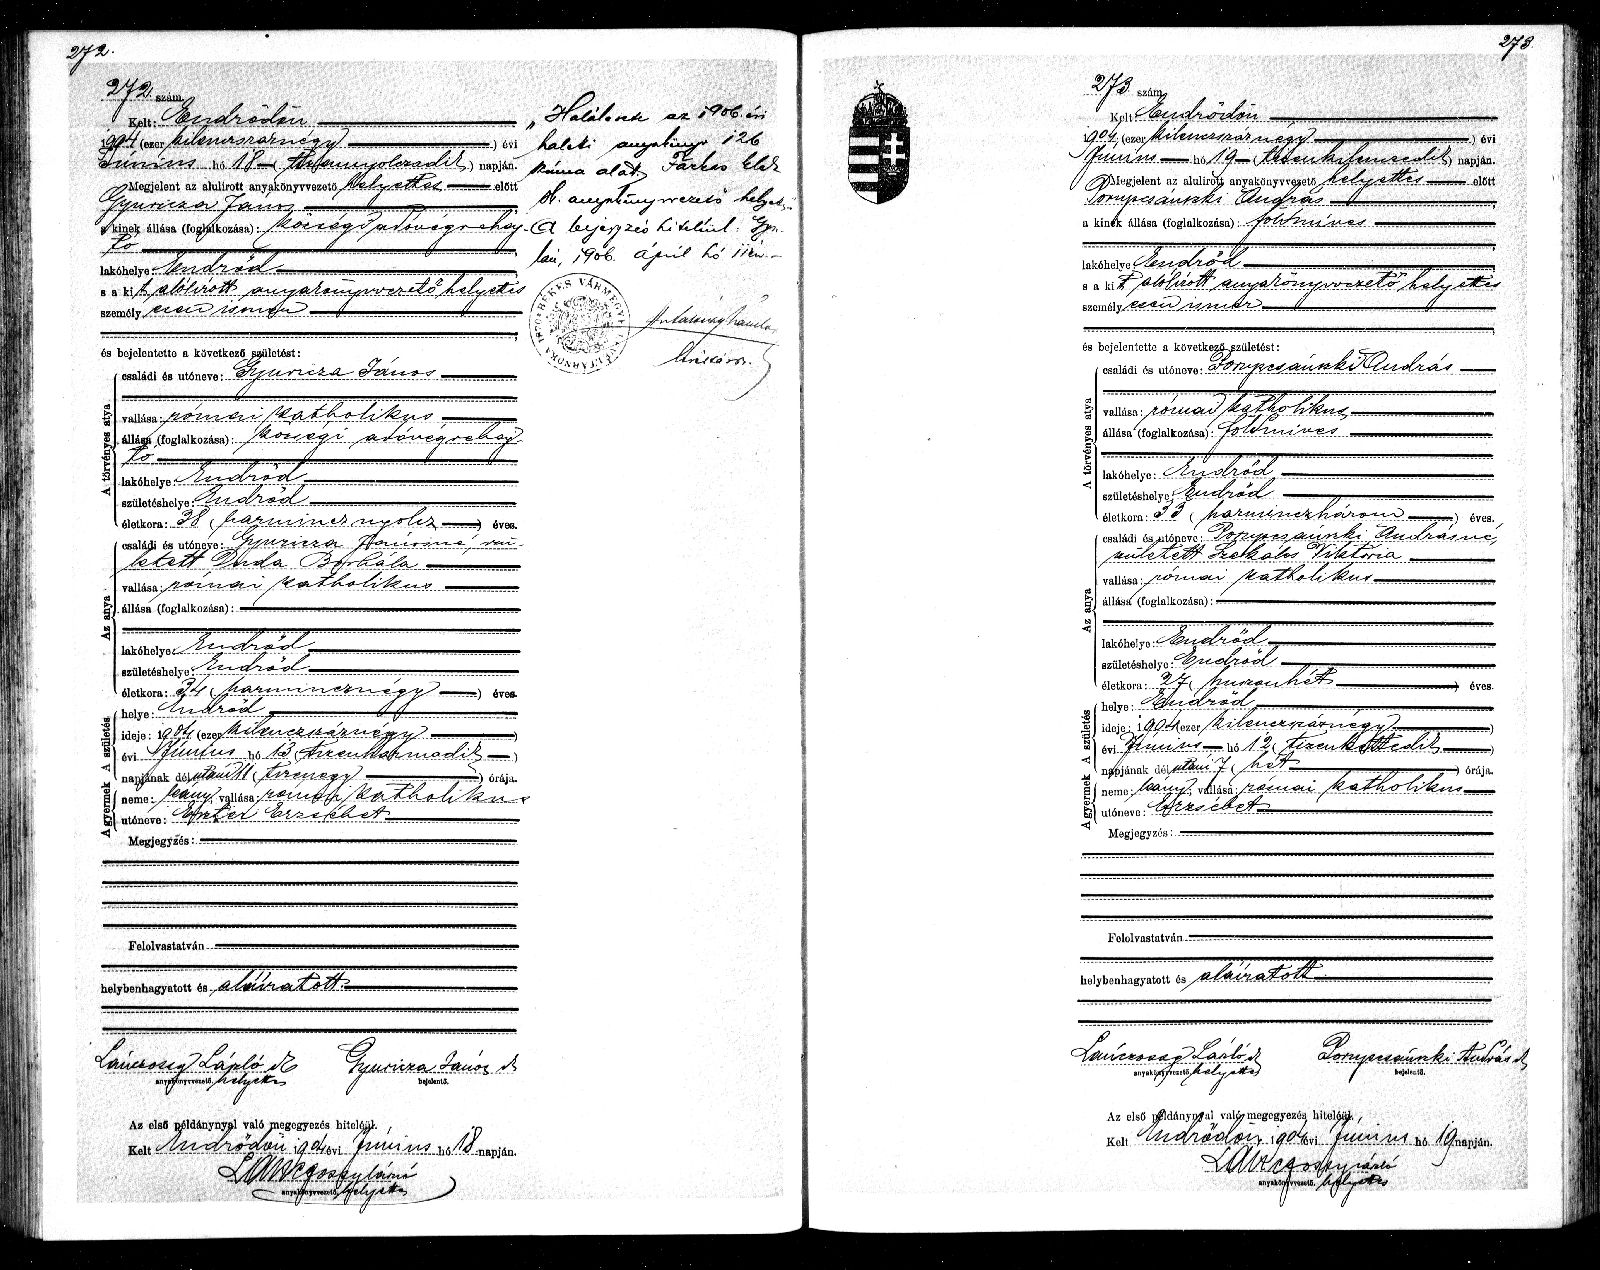 272.
272. szám.
Kelt: Endrődön
1904 (ezer kilenczszáznégy) évi
Június hó 18 (tizennyolczadik) napján.
Megjelent az alulirott anyakönyvvezető helyettes előtt
Gyuricza János
a kinek állása (foglalkozása): községi adóvégrehaj-
tó
lakóhelye: Endrőd
s a kit alólirott anyakönyvvezető helyettes
személyesen ismer
és bejelentette a következő születést:
A törvényes atya
családi és utóneve: Gyuricza János
vallása: római katholikus
állása (foglalkozása): községi adóvégrehaj
tó
lakóhelye: Endrőd
születéshelye: Endrőd
életkora: 38 (harmincznyolcz) éves.
Az anya
családi és utóneve: Gyuricza Jánosné, szü-
letett Duda Borbála
vallása: római katholikus
állása (foglalkozása):
lakóhelye: Endrőd
születéshelye: Endrőd
életkora: 34 (harmincznégy) éves.
A születés
helye: Endrőd
ideje: 1904 (ezer kilenczszáznégy)
évi Június hó 13 (tizenharmadik)
napjának délutáni 11 (tizenegy) órája.
A gyermek
neme: leány, vallása: római katholikus
utóneve: Eszter Erzsébet
Megjegyzés:
Felolvastatván
helybenhagyatott és aláíratott
Lánczossy László sk Gyuricza János sk
anyakönyvvezető helyettes bejelentő.
Az első példánynyal való megegyezés hiteléül.
Kelt Endrődön 1904 évi Június hó 18 napján.
Lánczossy László
anyakönyvvezető helyettes
„Halálozik az 1906. évi
halotti anyakönyv 126
száma alatt, Farkas
sk. anyakönyvvezető helyettes"
A bejegyzés hiteléül. Gyu-
lán, 1906. április hó 11én.
BÉKÉS VÁRMEGYE
273
273. szám.
Kelt: Endrődön
1904 (ezer kilenczszáznégy) évi
Június hó 19 (tizenkilenczedik) napján.
Megjelent az alulirott anyakönyvvezető helyettes előtt
Pornycsánszki András
a kinek állása (foglalkozása): földmíves
lakóhelye: Endrőd
s a kit alólirott anyakönyvvezető helyettes
személyesen ismer
és bejelentette a következő születést:
A törvényes atya
családi és utóneve: Pornycsánszki András
vallása: római katholikus
állása (foglalkozása): földmíves
lakóhelye: Endrőd
születéshelye: Endrőd
életkora: 33 (harminczhárom) éves.
Az anya
családi és utóneve: Pornycsánszki Andrásné,
született Szekáes Viktória
vallása: római katholikus
állása (foglalkozása):
lakóhelye: Endrőd
születéshelye: Endrőd
életkora: 27 (huszonhét) éves.
A születés
helye: Endrőd
ideje: 1904 (ezer kilenczszáznégy)
évi Június hó 12 (tizenkettedik)
napjának délutáni 7 (hét) órája.
A gyermek
neme: leány, vallása: római katholikus
utóneve: Erzsébet
Megjegyzés:
Felolvastatván
helybenhagyatott és aláíratott
Lánczossy László sk Pornycsánszki András sk
anyakönyvvezető helyettes bejelentő.
Az első példánynyal való megegyezés hiteléül.
Kelt Endrődön 1904 évi Június hó 19 napján.
Lánczossy László
anyakönyvvezető helyettes